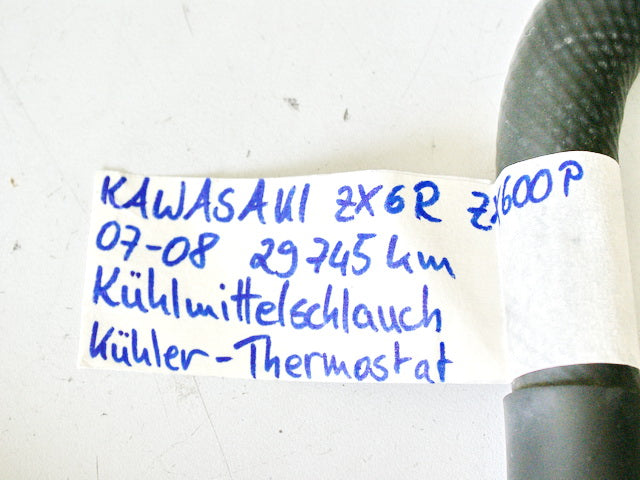 KAWASAKI ZX6R ZX600P
07-08 29745 km
Kühlmittelschlauch
Kühler-Thermostat